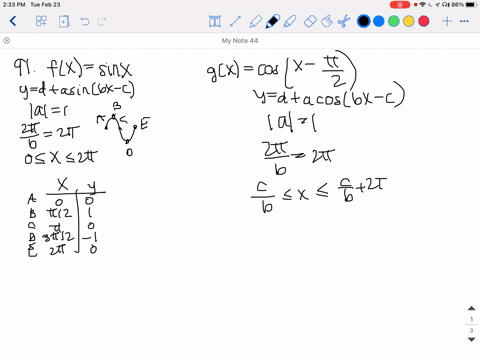 2:33 PM Tue Feb 23
86%
My Note 44
91. f(x) = sinx
y=d+asin(bx-c)
|a|=1
2π/b = 2π
0≤x≤2π
A B C D E
x y
A 0 0
B π/2 1
C π 0
D 3π/2 -1
E 2π 0
g(x) = cos(x - π/2)
y=d+acos(bx-c)
|a|=1
2π/b = 2π
c/b ≤ x ≤ c/b + 2π
1
3